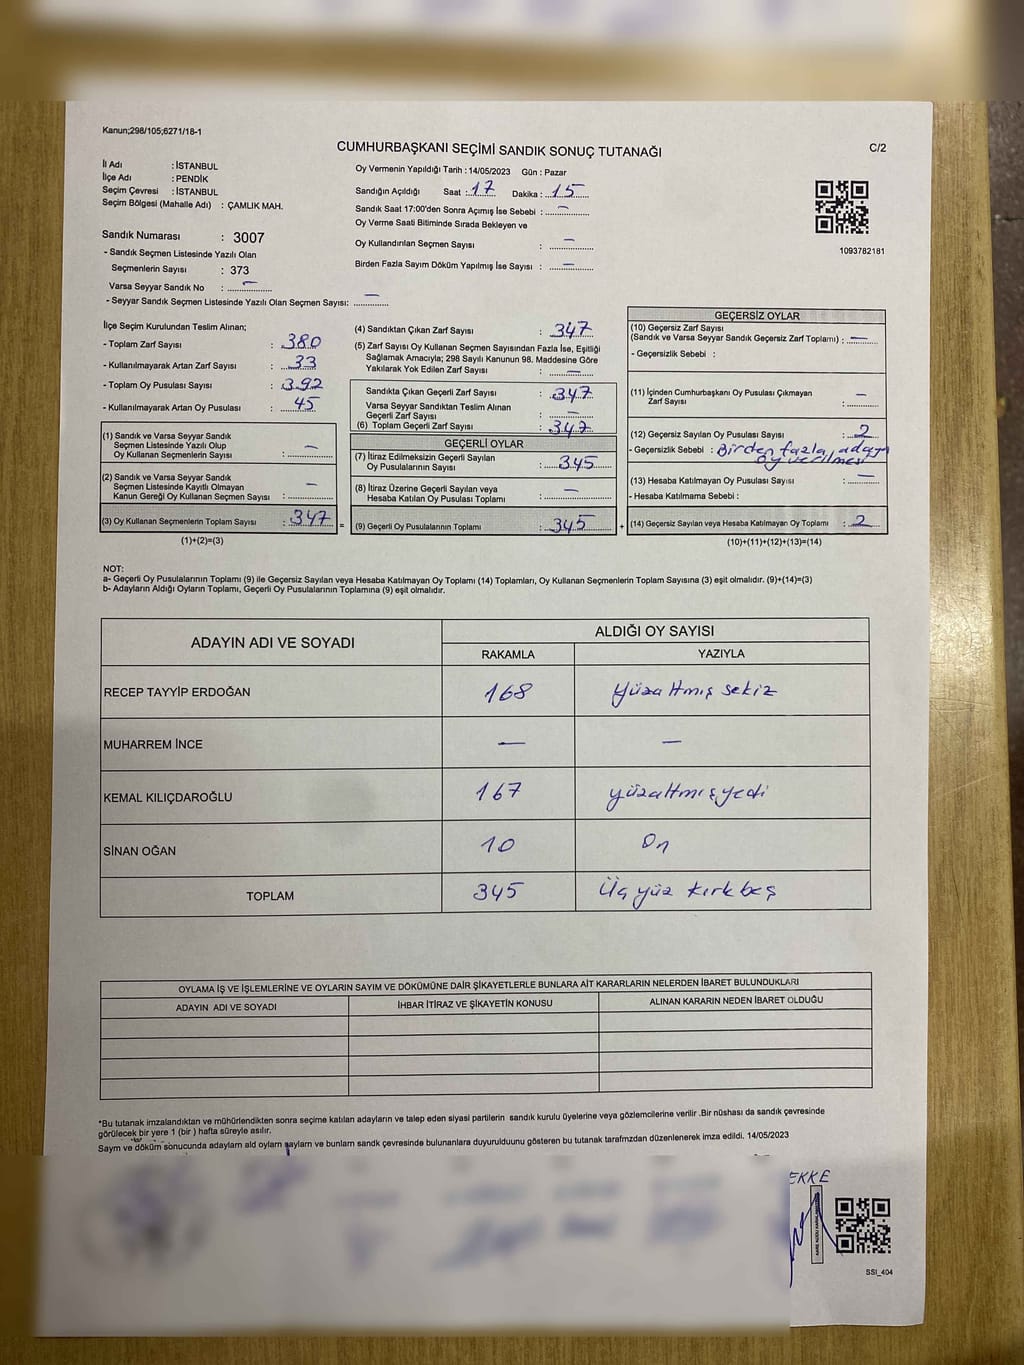 Kanun;298/105;6271/18-1
CUMHURBAŞKANI SEÇİMİ SANDIK SONUÇ TUTANAĞI
C/2
İl Adı : İSTANBUL
İlçe Adı : PENDİK
Seçim Çevresi : İSTANBUL
Seçim Bölgesi (Mahalle Adı) : ÇAMLIK MAH.
Oy Vermenin Yapıldığı Tarih : 14/05/2023 Gün : Pazar
Sandığın Açıldığı Saat : 17 Dakika : 15
Sandık Saat 17:00'den Sonra Açımış İse Sebebi : —
Oy Verme Saati Bitiminde Sırada Bekleyen ve
Oy Kullandırılan Seçmen Sayısı : —
Birden Fazla Sayım Döküm Yapılmış İse Sayısı : —
1093782181
Sandık Numarası : 3007
- Sandık Seçmen Listesinde Yazılı Olan
Seçmenlerin Sayısı : 373
Varsa Seyyar Sandık No : —
- Seyyar Sandık Seçmen Listesinde Yazılı Olan Seçmen Sayısı: —
İlçe Seçim Kurulundan Teslim Alınan;
- Toplam Zarf Sayısı : 380
- Kullanılmayarak Artan Zarf Sayısı : 33
- Toplam Oy Pusulası Sayısı : 392
- Kullanılmayarak Artan Oy Pusulası : 45
(1) Sandık ve Varsa Seyyar Sandık
Seçmen Listesinde Yazılı Olup
Oy Kullanan Seçmenlerin Sayısı : —
(2) Sandık ve Varsa Seyyar Sandık
Seçmen Listesinde Kayıtlı Olmayan
Kanun Gereği Oy Kullanan Seçmen Sayısı : —
(3) Oy Kullanan Seçmenlerin Toplam Sayısı : 347 =
(1)+(2)=(3)
(4) Sandıktan Çıkan Zarf Sayısı : 347
(5) Zarf Sayısı Oy Kullanan Seçmen Sayısından Fazla İse, Eşitliği
Sağlamak Amacıyla; 298 Sayılı Kanunun 98. Maddesine Göre
Yakılarak Yok Edilen Zarf Sayısı : —
Sandıkta Çıkan Geçerli Zarf Sayısı : 347
Varsa Seyyar Sandıktan Teslim Alınan
Geçerli Zarf Sayısı : —
(6) Toplam Geçerli Zarf Sayısı : 347
GEÇERLİ OYLAR
(7) İtiraz Edilmeksizin Geçerli Sayılan
Oy Pusulalarının Sayısı : 345
(8) İtiraz Üzerine Geçerli Sayılan veya
Hesaba Katılan Oy Pusulası Toplamı : —
(9) Geçerli Oy Pusulalarının Toplamı : 345 +
GEÇERSİZ OYLAR
(10) Geçersiz Zarf Sayısı
(Sandık ve Varsa Seyyar Sandık Geçersiz Zarf Toplamı) : —
- Geçersizlik Sebebi :
(11) İçinden Cumhurbaşkanı Oy Pusulası Çıkmayan
Zarf Sayısı : —
(12) Geçersiz Sayılan Oy Pusulası Sayısı : 2
- Geçersizlik Sebebi : Birden fazla adaya
oy verilmesi
(13) Hesaba Katılmayan Oy Pusulası Sayısı : —
- Hesaba Katılmama Sebebi :
(14) Geçersiz Sayılan veya Hesaba Katılmayan Oy Toplamı : 2
(10)+(11)+(12)+(13)=(14)
NOT:
a- Geçerli Oy Pusulalarının Toplamı (9) ile Geçersiz Sayılan veya Hesaba Katılmayan Oy Toplamı (14) Toplamları, Oy Kullanan Seçmenlerin Toplam Sayısına (3) eşit olmalıdır. (9)+(14)=(3)
b- Adayların Aldığı Oyların Toplamı, Geçerli Oy Pusulalarının Toplamına (9) eşit olmalıdır.
ADAYIN ADI VE SOYADI
ALDIĞI OY SAYISI
RAKAMLA YAZIYLA
RECEP TAYYİP ERDOĞAN 168 Yüzaltmış sekiz
MUHARREM İNCE — —
KEMAL KILIÇDAROĞLU 167 yüzaltmışyedi
SİNAN OĞAN 10 On
TOPLAM 345 Üçyüz kırkbeş
OYLAMA İŞ VE İŞLEMLERİNE VE OYLARIN SAYIM VE DÖKÜMÜNE DAİR ŞİKAYETLERLE BUNLARA AİT KARARLARIN NELERDEN İBARET BULUNDUKLARI
ADAYIN ADI VE SOYADI İHBAR İTİRAZ VE ŞİKAYETİN KONUSU ALINAN KARARIN NEDEN İBARET OLDUĞU
*Bu tutanak imzalandıktan ve mühürlendikten sonra seçime katılan adayların ve talep eden siyasi partilerin sandık kurulu üyelerine veya gözlemcilerine verilir .Bir nüshası da sandık çevresinde
görülecek bir yere 1 (bir ) hafta süreyle asılır.
Saym ve döküm sonucunda adaylarn ald oylarn saylarn ve bunlarn sandk çevresinde bulunanlara duyurulduunu gösteren bu tutanak tarafmzdan düzenlenerek imza edildi. 14/05/2023
EKKE
SSI_404